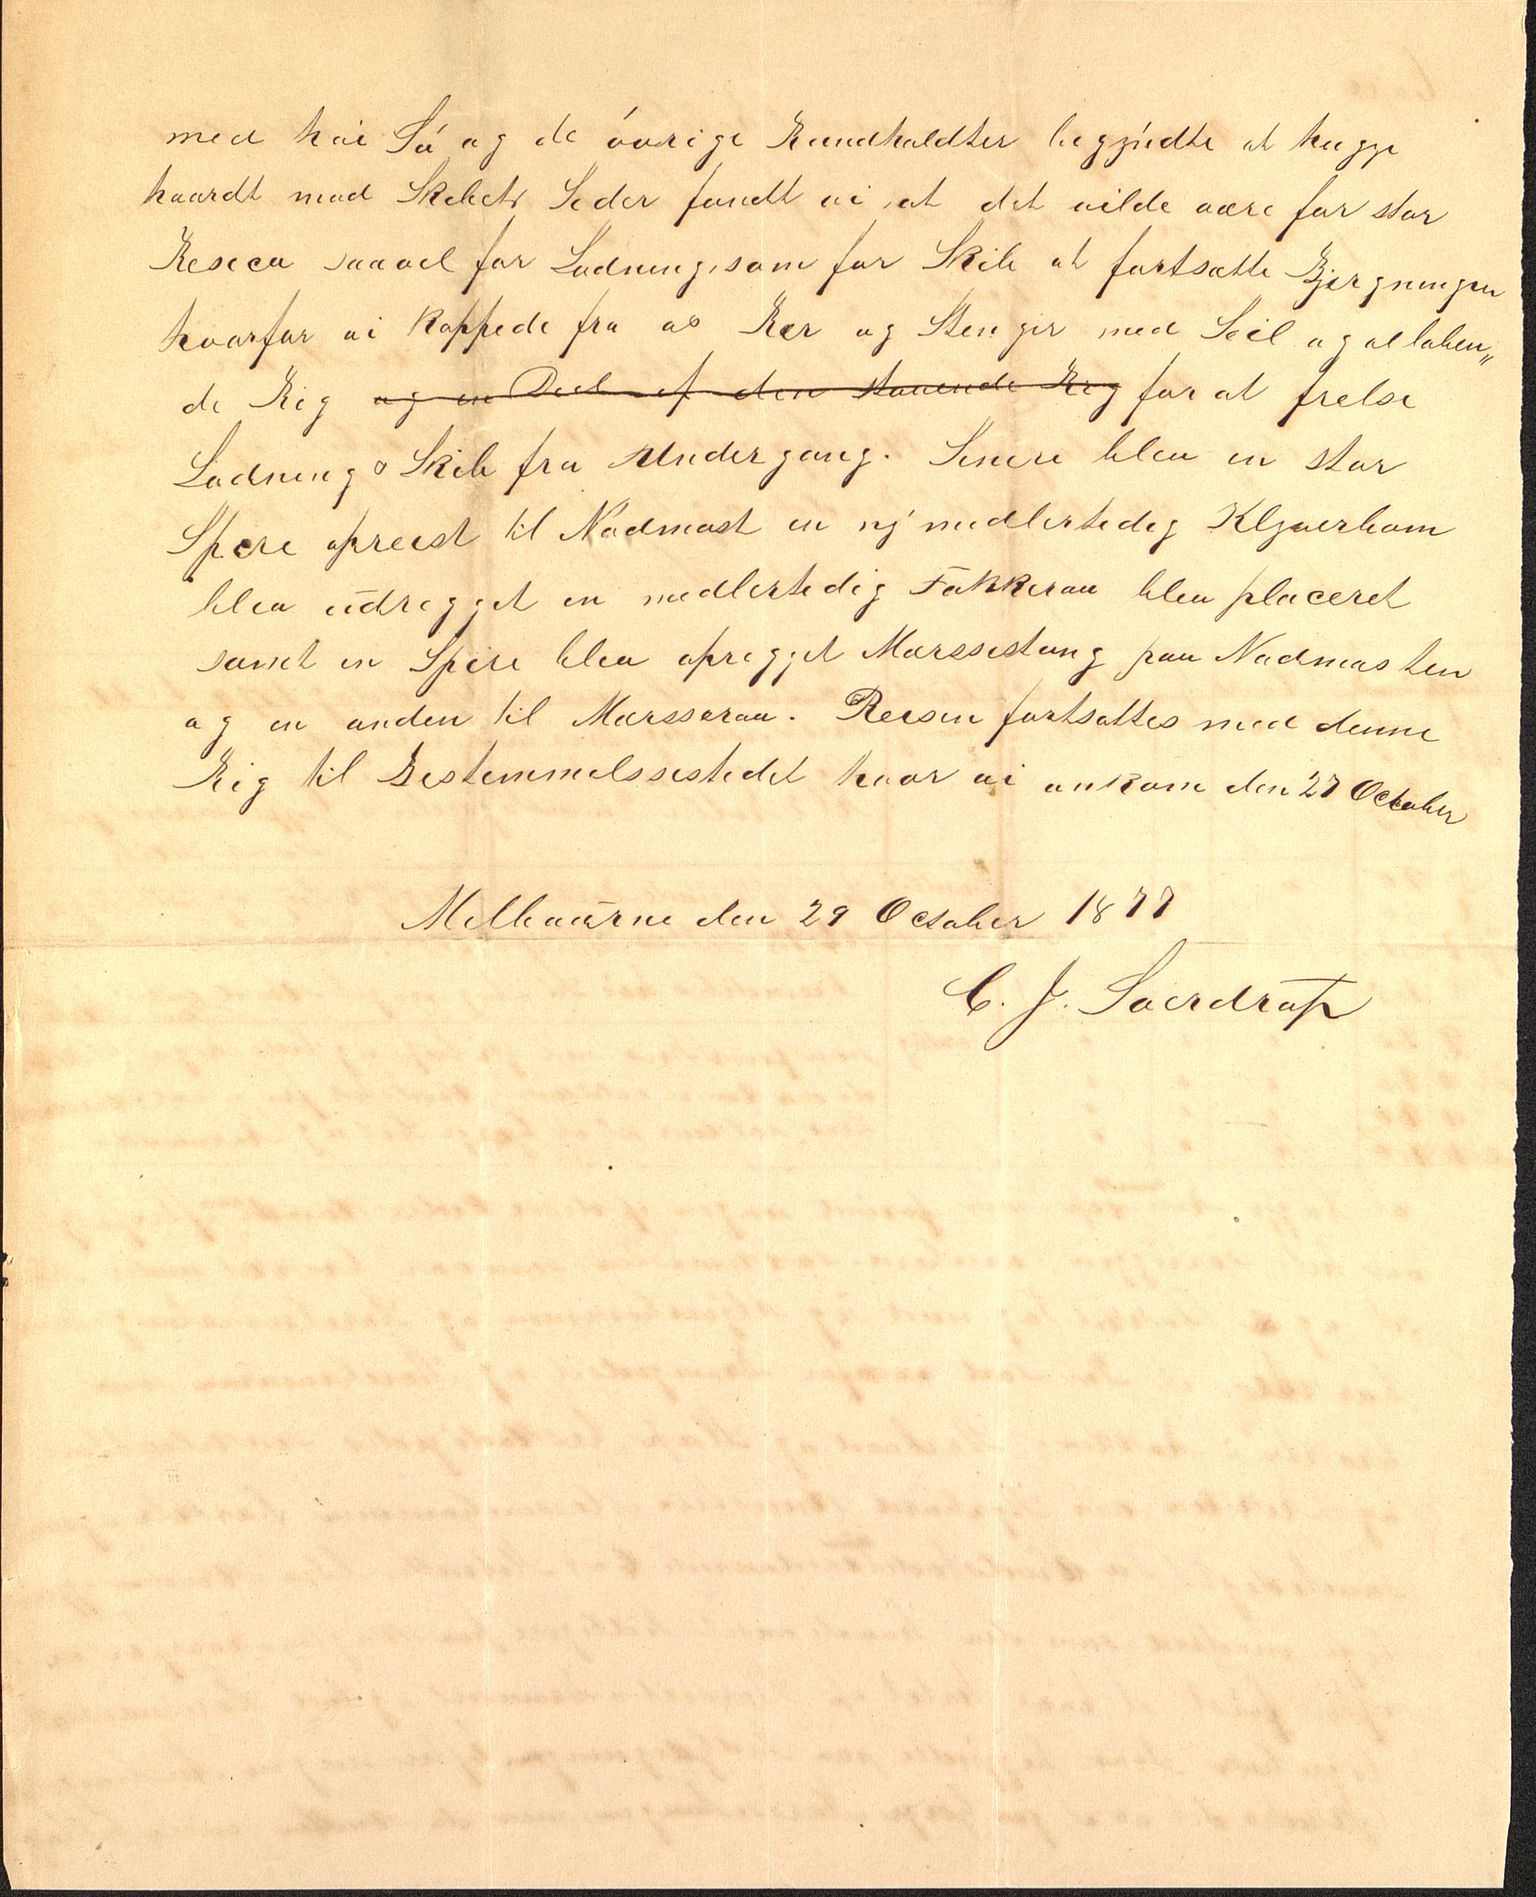 med høi Sø og de øvrige Rundholdter begyndte at hugge
haardt mod Skibets Sider fandt vi at det vilde være for stor
Resico saavel for Ladning som for Skib at fortsætte Bjergningen
hvorfor vi kappede fra os Rær og Stenger med Seil og al løben„
de Rig og en Deel af den staaende Rig for at frelse
Ladning & Skib fra Undergang. Senere blev en stor
Spire opreist til Nødmast en ny midlertidig Klyverbom
blev udrigget en midlertidig Fokkeraa blev placeret
samt en Spire blev oprigget Mærsestang paa Nødmasten
og en anden til Mærsseraa. Reisen fortsattes med denne
Rig til Bestemmelsesstedet hvor vi ankom den 27 October
Melbourne den 29 October 1877
C. J. Sverdrup